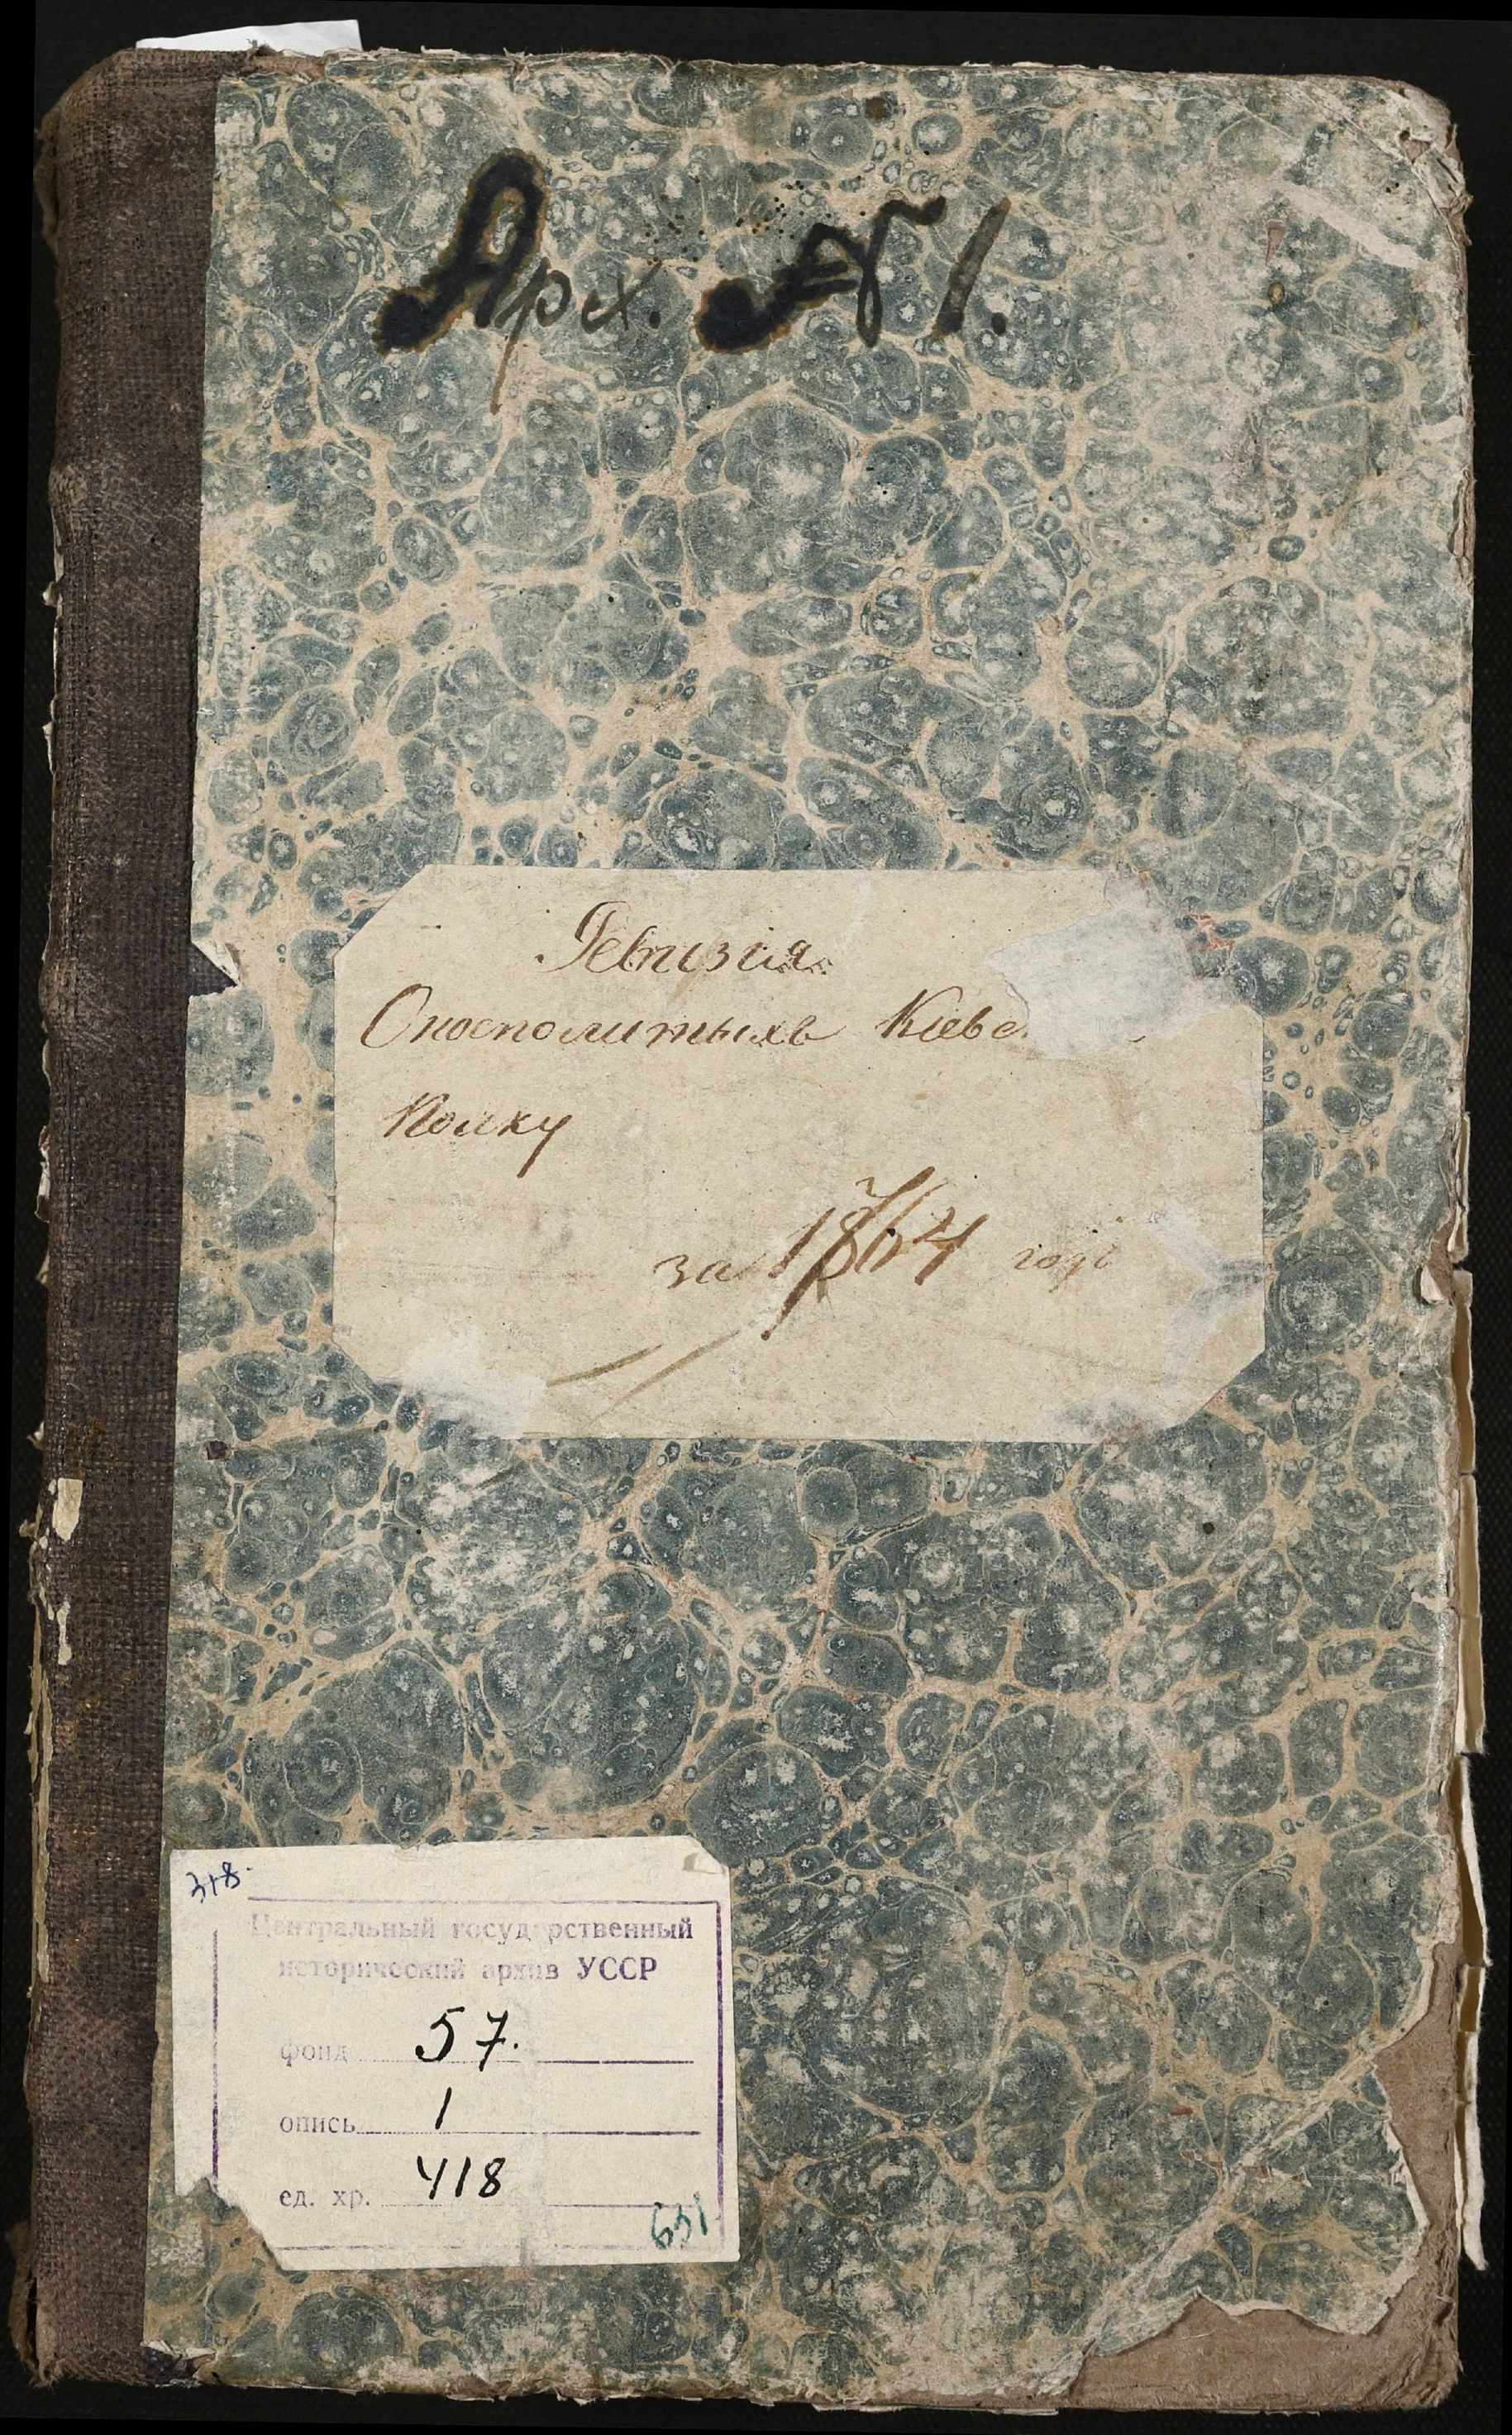 Арх. № 1.
Ревизія
О посполитыхъ Киевс
Полку
за 1764 годъ
318.
Центральный государственный
исторический архив УССР
фонд 57.
опись 1
ед. хр. 418
631